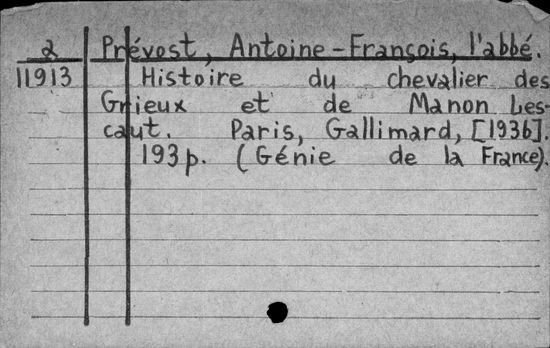 2 Prévost, Antoine-François, l'abbé.
11913 Histoire du chevalier des
Grieux et de Manon Les-
caut. Paris, Gallimard, [1936].
193 p. (Génie de la France).